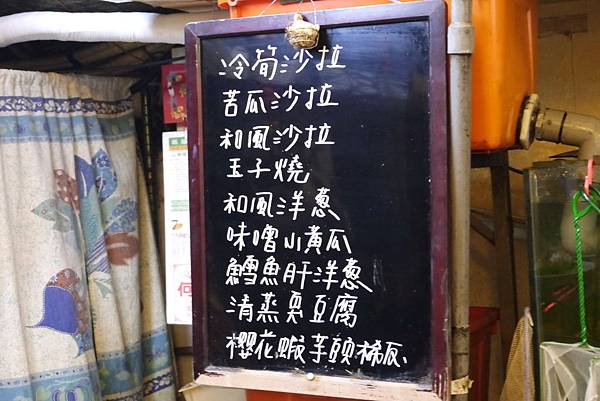 冷筍沙拉
苦瓜沙拉
和風沙拉
玉子燒
和風洋蔥
味噌小黃瓜
鱈魚肝洋蔥
清蒸臭豆腐
櫻花蝦芋頭稀飯
何